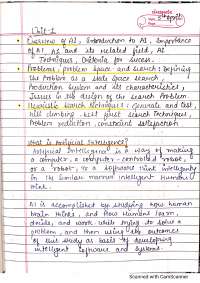 Unit-1
• Overview of AI, Introduction to AI, Importance
of AI, AI and its related field, AI
Techniques, Criteria for success.
• Problems, problem space and search: Defining
the Problem as a state space search,
Production System and its characteristics,
Issues in the design of the search Problem
• Heuristic search techniques: Generate and test,
hill climbing, best first search techniques,
Problem reduction, constraint satisfaction
What is Artificial Intelligence?
Artificial Intelligence is a way of making
a computer, a computer-controlled robot,
or a software think intelligently
in the similar manner intelligent humans
think.
AI is accomplished by studying how human
brain thinks, and how humans learn,
decide, and work while trying to solve a
problem, and then using the outcomes
of this study as basis of developing
intelligent software and systems.
Scanned with CamScanner